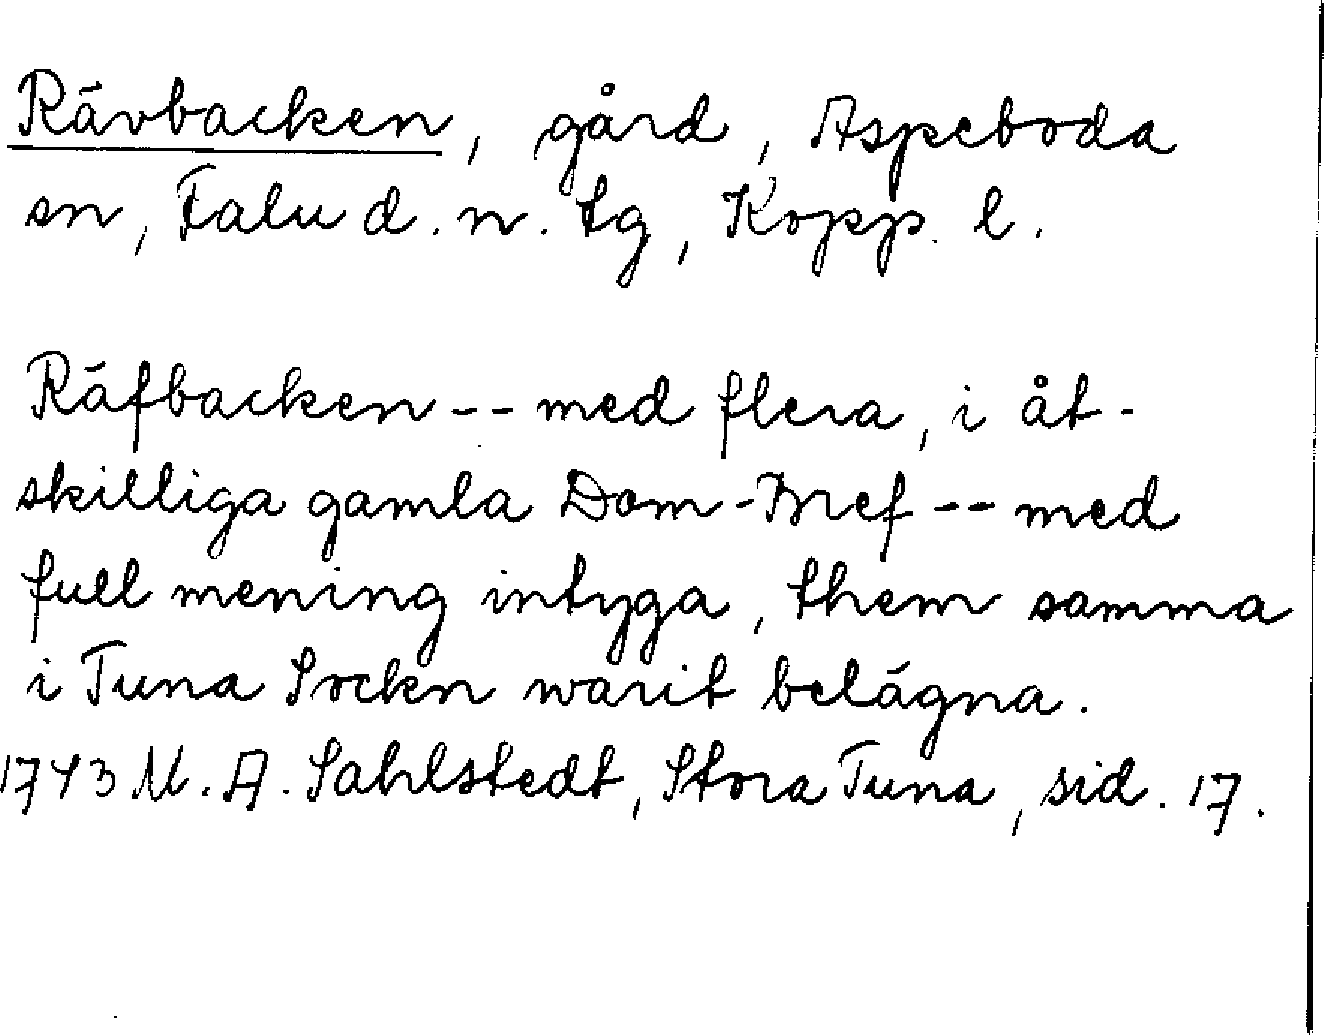 Rävbacken, gård, Aspeboda
sn, Falu d. n. tg, Kopp. l.
Räfbacken -- med flera, i åt-
skilliga gamla Dom-Bref -- med
full mening intyga, them samma
i Tuna Sockn warit belägna.
1743 M. A. Sahlstedt, Stora Tuna, sid. 17.